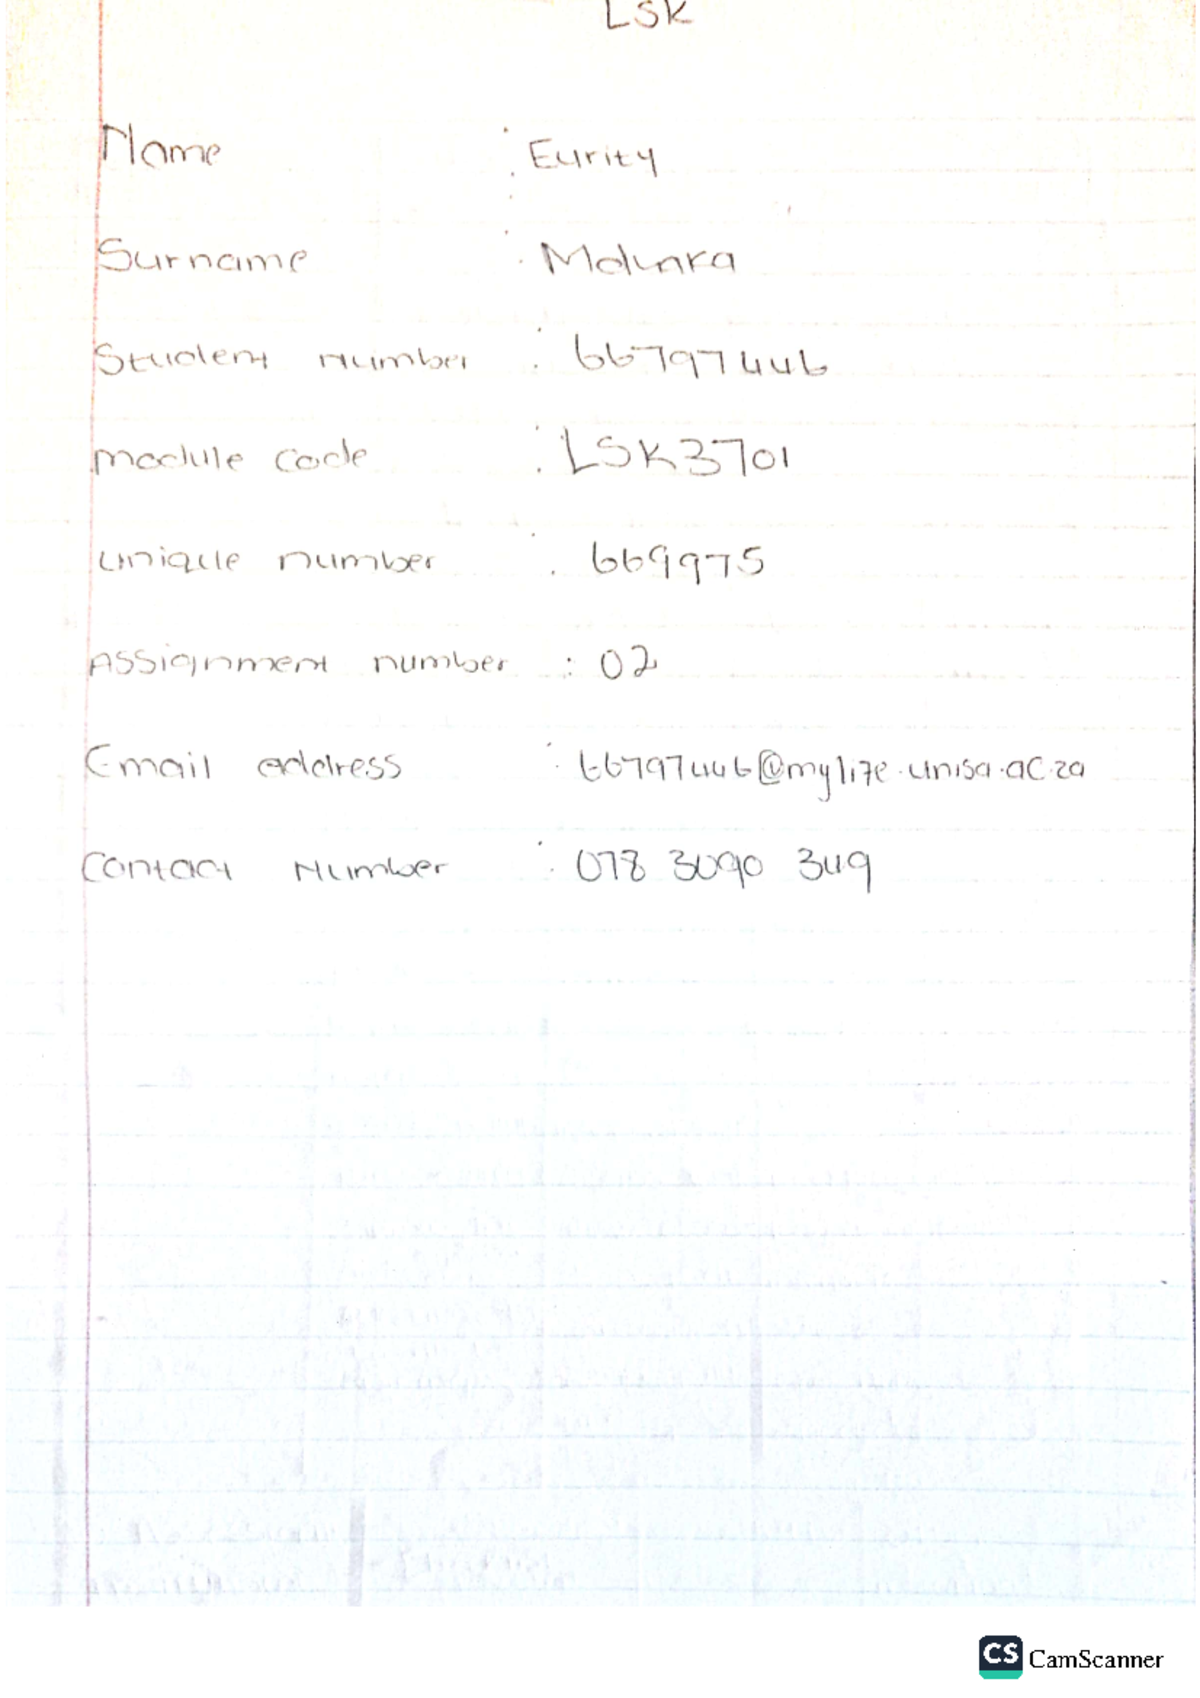 LSK
Name : Eurity
Surname : Madunka
Student number : 66797446
module code : LSK3701
unique number : 669975
Assignment number : 02
Email address : 66797446@mylife.unisa.ac.za
Contact Number : 078 3090 349
CS CamScanner